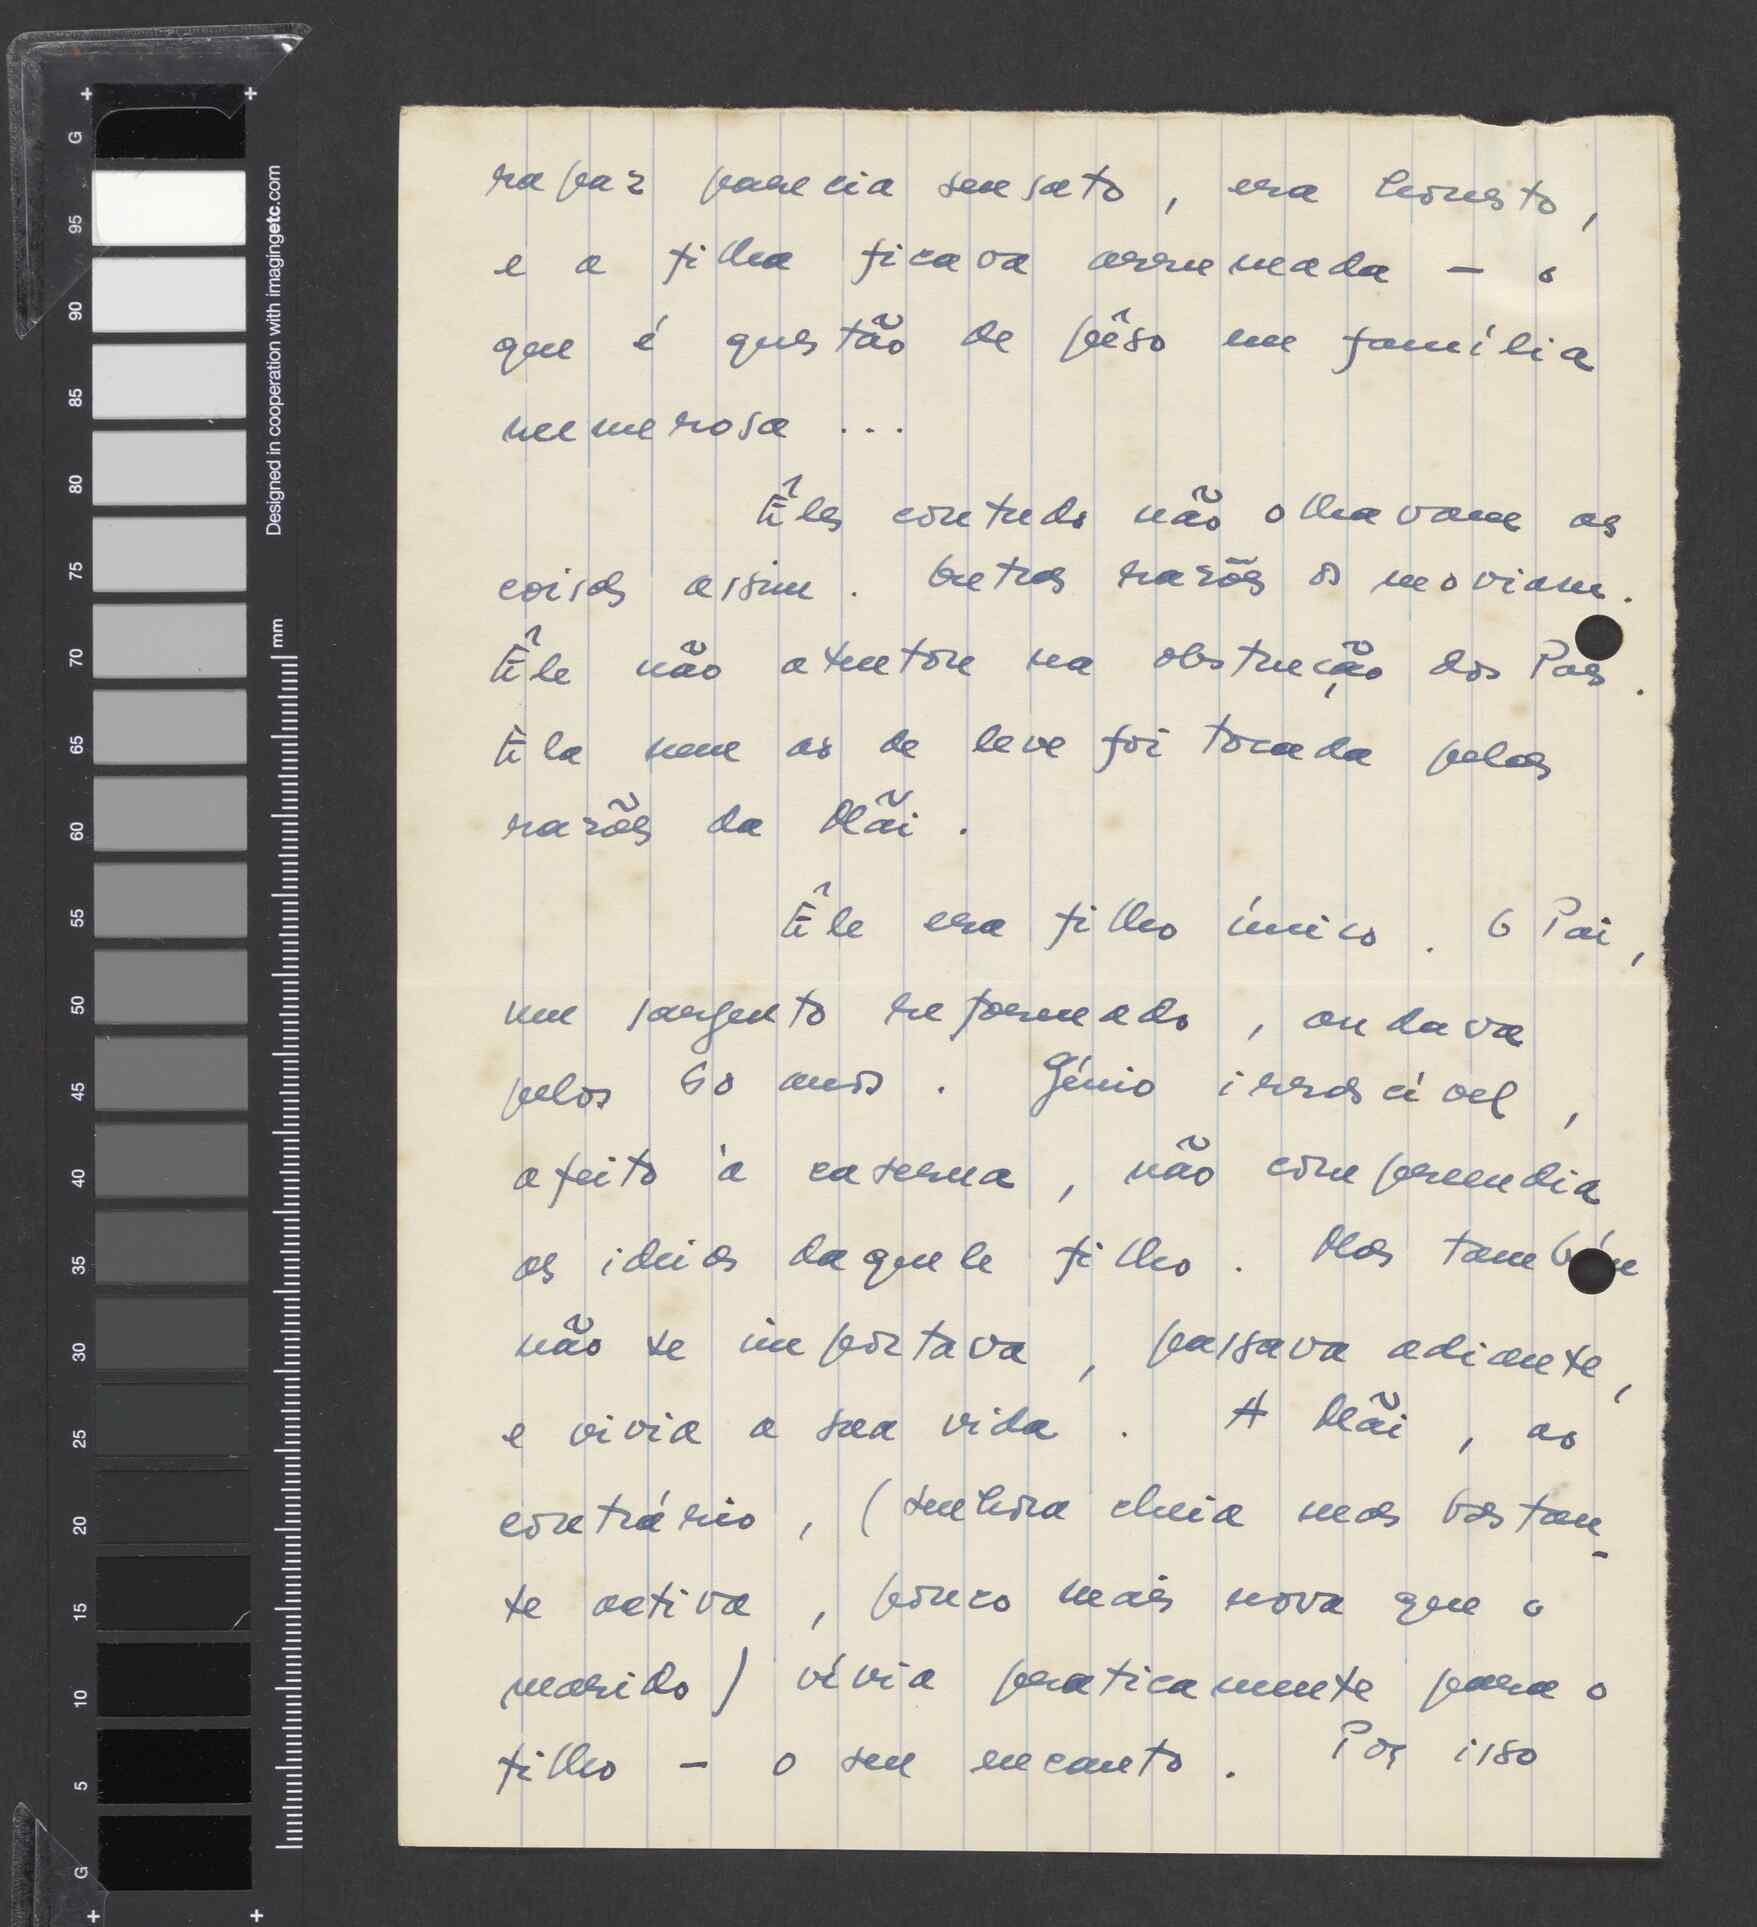 rapaz parecia sensato, era honesto,
e a filha ficava arrumada – o
que é questão de pêso em família
numerosa ...
Êles contudo não olhavam as
coisas assim. Outras razões os moviam.
Êle não atentou na obstrução dos Pais.
Ela nem ao de leve foi tocada pelas
razões da Mãi.
Êle era filho único. O Pai,
um sargento reformado, andava
pelos 60 anos. Génio irrascível,
afeito à caserna, não compreendia
as ideias daquele filho. Mas também
não se importava, passava adiante,
e vivia a sua vida. A Mãi, ao
contrário, (senhora cheia mas bastan-
te activa, pouco mais nova que o
marido) vivia praticamente para o
filho – o seu encanto. Por isso
G
95
90
85
80
75
70
65
60
55
50
45
40
35
30
25
20
15
10
5
G
Designed in cooperation with imagingetc.com
mm